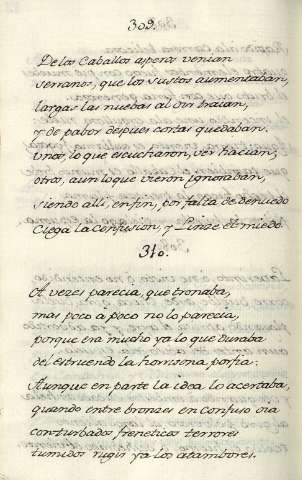 309.
De los Caballos asperos venian
serranos, que los sustos aumentaban,
largas las nuebas al oir traian,
y de pabor despues cortas quedaban.
Unos, lo que escucharon, ver hacian;
otros, aun lo que vieron ignoraban,
siendo alli, en fin, por falta de denuedo
Ciega la Confusion, y Linze el miedo.
310.
A vezes parecia, que tronaba,
mas poco à poco no lo parecia,
porque era mucho ya lo que duraba
del estruendo la horrisona porfia.
Aunque en parte la idea lo acertaba,
quando entre bronzes en confuso oia
conturbados freneticos terrores
tumidos rugir ya los atambores.